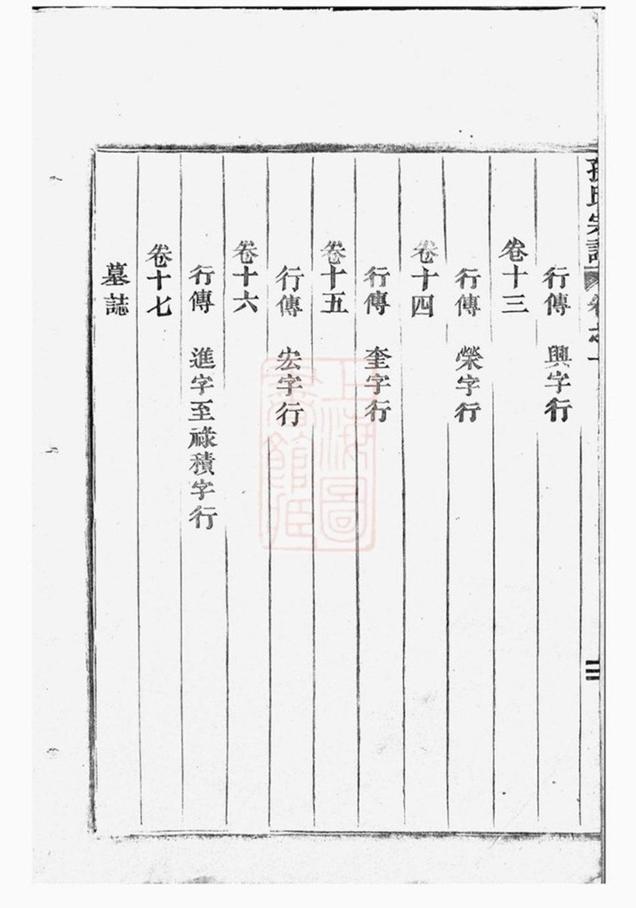 孫氏宗譜 卷之一
行傳 興字行
卷十三
行傳 榮字行
卷十四
行傳 奎字行
卷十五
行傳 宏字行
卷十六
行傳 進字至祿積字行
卷十七
墓誌
三
上海圖書館藏